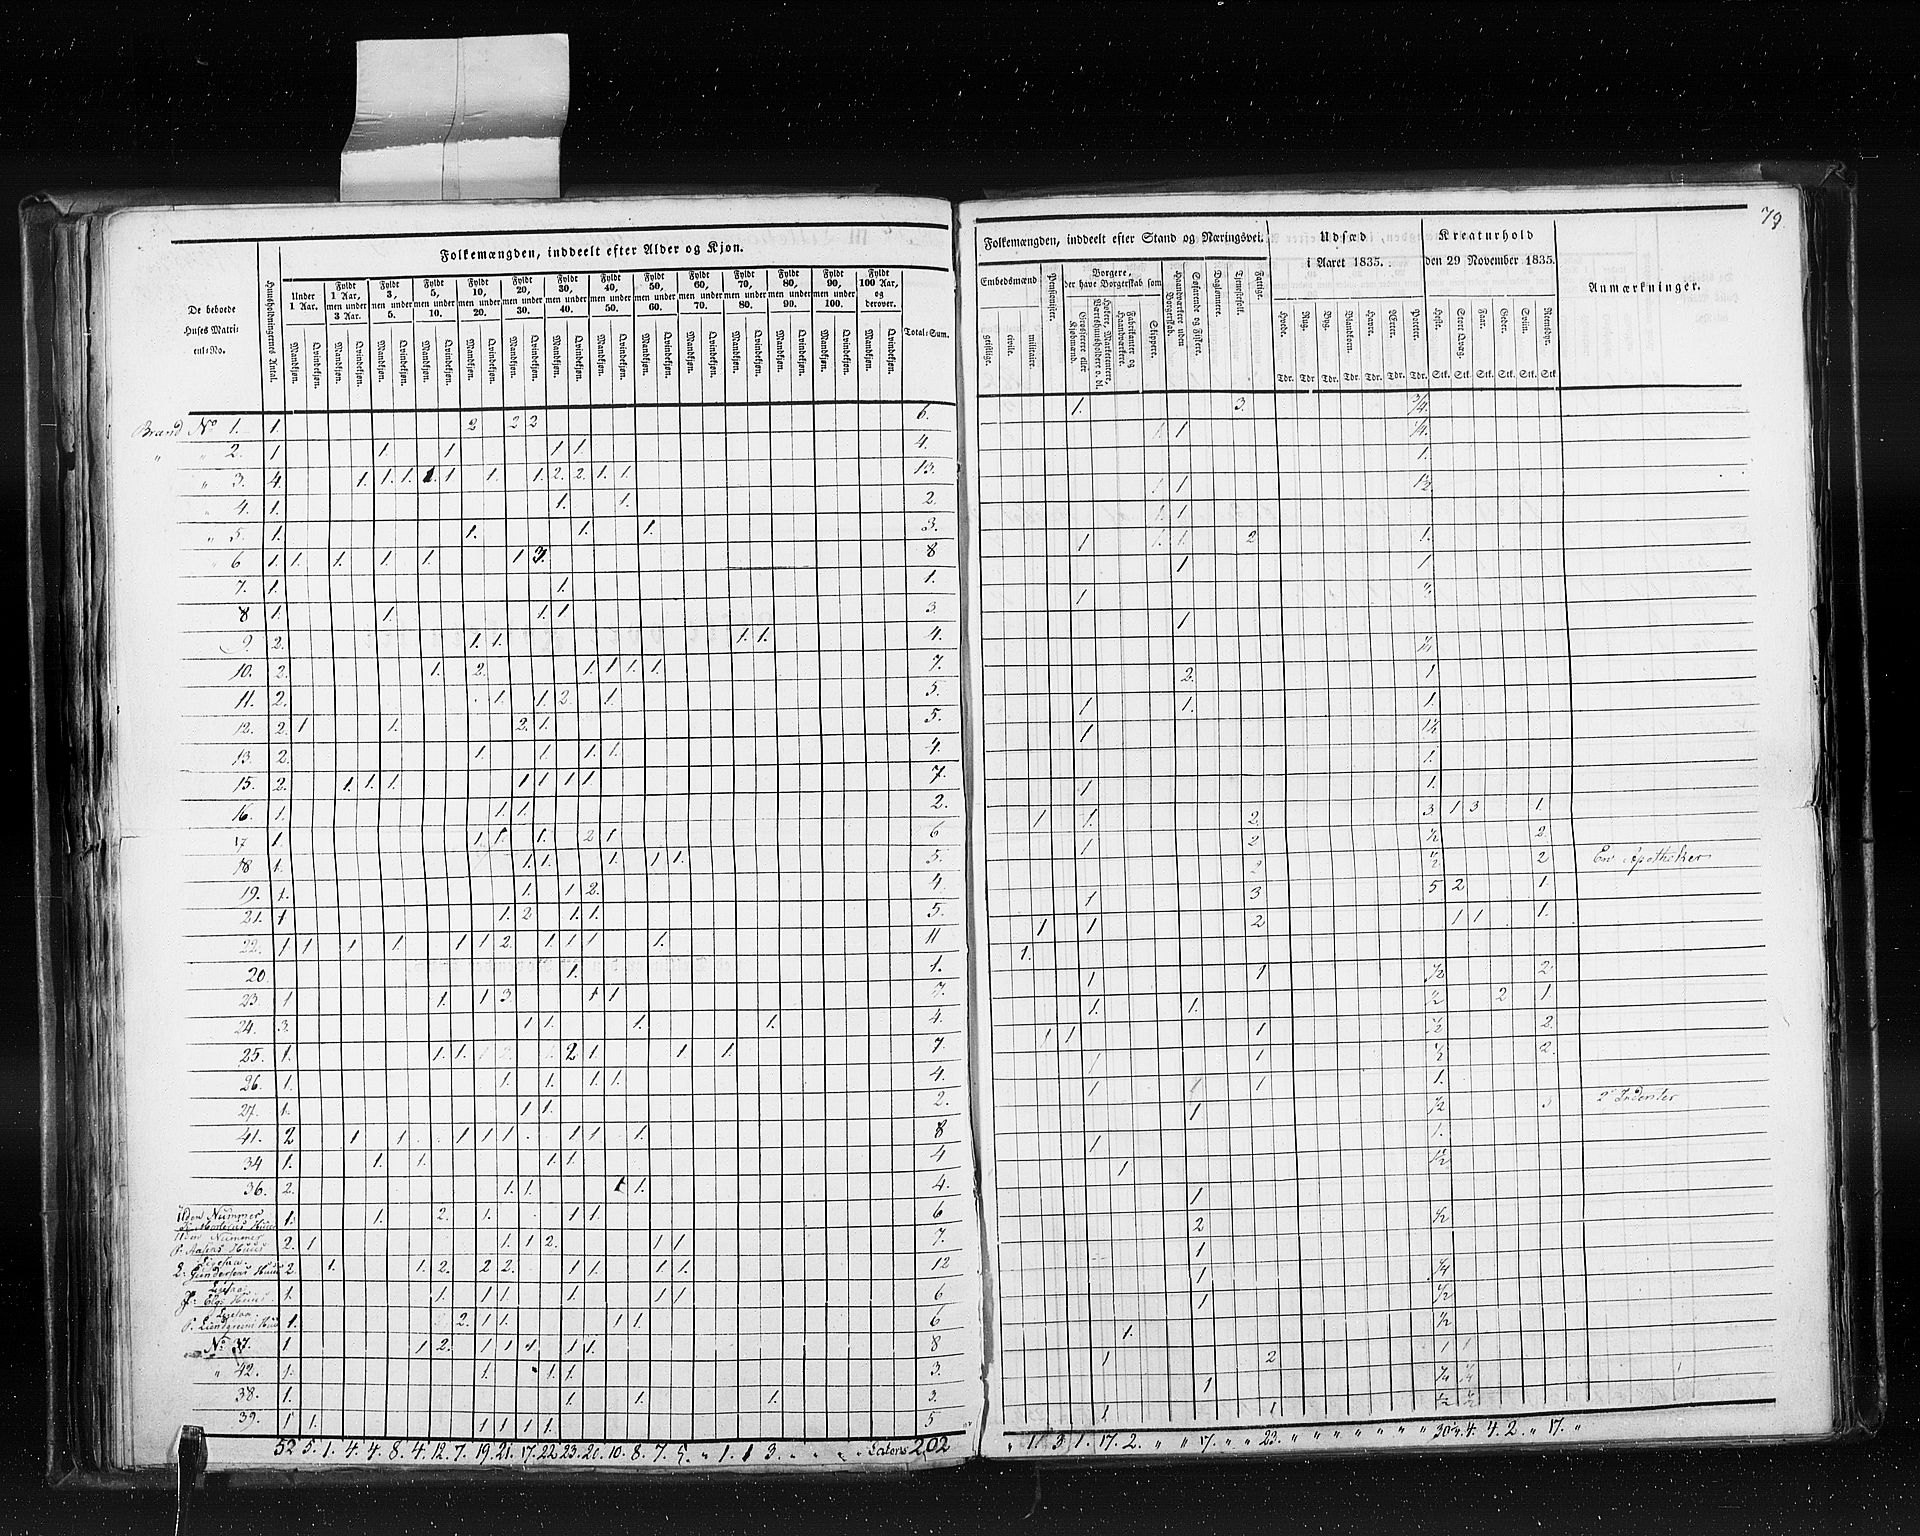 79.
Folkemængden, inddeelt efter Alder og Kjøn.
De beboede Huses Matricul-No.
Huusholdningernes Antal.
Under 1 Aar.
Fyldt 1 Aar, men under 3 Aar.
Fyldt 3, men under 5.
Fyldt 5, men under 10.
Fyldt 10, men under 20.
Fyldt 20, men under 30.
Fyldt 30, men under 40.
Fyldt 40, men under 50.
Fyldt 50, men under 60.
Fyldt 60, men under 70.
Fyldt 70, men under 80.
Fyldt 80, men under 90.
Fyldt 90, men under 100.
Fyldt 100 Aar, og derover.
Total-Sum.
Mandkjøn. Qvindekjøn.
Brand No 1. 1. 2 2 2 6.
" " 2. 1 1 1 1 1 4.
" 3. 4. 1. 1. 1. 1. 1 1. 1. 2. 2. 1. 1. 13.
" 4. 1. 1. 1. 2.
" 5. 1. 1. 1. 1. 3.
" 6 1. 1. 1. 1. 1. 1 3. 8
7. 1. 1. 1.
8 1. 1. 1. 1 3.
9. 2. 1. 1. 1. 1. 4.
10. 2. 1. 2. 1. 1 1. 1. 7.
11. 2. 1. 1. 2. 1. 5.
12. 2. 1 1. 2. 1. 5.
13. 2. 1. 1. 1. 1. 4.
15. 2. 1. 1. 1. 1 1 1 1. 7.
16. 1. 1. 1. 2.
17 1. 1. 1. 1. 2 1. 6
18 1. 1. 1. 1. 1 1. 5.
19. 1. 1. 1 2. 4.
21. 1 1. 2 1. 1. 5.
22. 1 1 1. 1. 1 1 2. 1 1 1 1. 11
20. 1. 1.
23. 1 1. 1 3. 1 1. 7.
24. 3. 1 1. 1. 1. 4.
25. 1. 1. 1. 2 1. 1. 1. 7.
26. 1. 1. 1. 1. 1. 4.
27. 1. 1 1. 2.
41. 2 1 1. 1 1 1. 1 1. 1. 8
34 1. 1. 1. 1 1. 4
36. 2. 1. 1. 1 1. 4.
Uden Nummer
1. 1. 2. 1. 1 1. 6
Uden Nummer
2. 1 1. 1 2. 1 1. 7.
Ligesaa
Gundersens Huus 2. 1. 1. 2. 2 2. 1 1. 1 1. 12
Ligesaa
1. 1. 1 1. 1. 1 1. 6
Ligesaa
P. Lundgreens Huus 1. 2. 1 1. 1 1. 6
No 37. 1 1 2. 1 1 1 1 1. 8
" 42. 1. 1. 1. 1. 3.
38. 1. 1. 1. 1. 3.
39. 1 1. 1 1 1 1. 5
52 5. 1. 4. 4. 8. 4. 12. 7. 19. 21. 17. 22. 23. 20. 10. 8. 7. 5. " 1. 1 3. " " " Lateris 202
Folkemængden, inddeelt efter Stand og Næringsvei.
Embedsmænd
geistlige.
civile.
militaire.
Pensionister.
Borgere, der have Borgerskab som
Grosserere eller Kjøbmænd.
Fabrikanter og Haandværkere.
Skippere.
Haandværkere uden Borgerskab.
Søfarende og Fiskere.
Daglønnere.
Tjenestefolk.
Fattige.
Udsæd i Aaret 1835.
Hvede. Rug. Byg. Blandkorn. Havre. Ærter. Poteter.
Tdr. Tdr. Tdr. Tdr. Tdr. Tdr. Tdr.
Kreaturhold den 29 November 1835.
Heste. Stort Qvæg. Faar. Geder. Sviin. Rensdyr.
Stk. Stk. Stk. Stk. Stk. Stk
Anmærkninger.
1. 3. 3/4.
1 1 1/4.
1.
1 1 1 1/2.
1. 1
1 1. 1. 2 1.
1 1
1 "
1
1/2
2. 1
1 1. 1.
1 1 1/2
1.
1 1.
1 1. 2. 3 1 3 1
1 2 1/2 2.
2 1/2 2 En Apotheker
1 3 5 2 1
1 1 2 1 1 1.
1.
1 1 1/2 2.
1. 1. 1/2 2 1.
1 1 1 1/2 2.
1 1 1/2 2.
1 1 1 1.
1 1/2 2 Inderster
1 1.
1 1 1/2
1
2 1/2
1
1 1/4
1 1/2
1. 1/2
1 2 1 1
1 1/4 1/4
1 1 1/2 1/2
" 11 3 1. 17. 2. " " 17. " " 23. " " " " " " 30 4. 4. 2. " 17. "